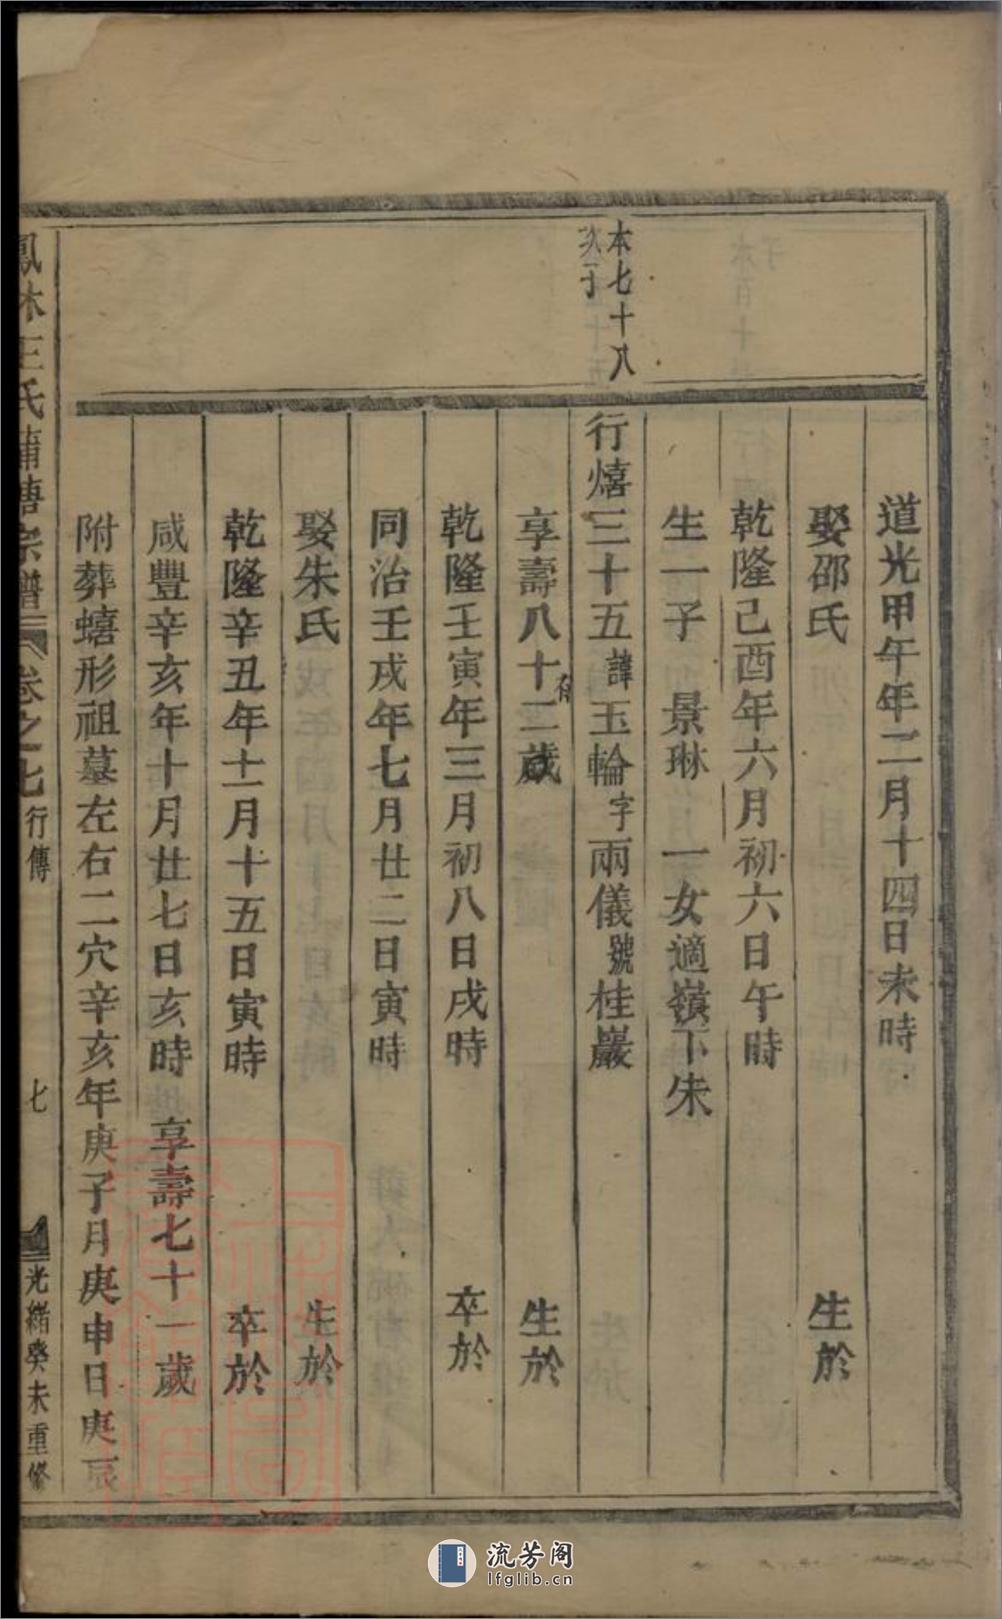 道光甲午年二月十四日未時
娶邵氏　生於
乾隆己酉年六月初六日午時
生一子　景琳　一女適嶺下朱
本七十八
次子
行熺三十五諱玉輪字兩儀號桂巖
享壽八十二歲　生於
乾隆壬寅年三月初八日戌時　卒於
同治壬戌年七月廿二日寅時
娶朱氏　生於
乾隆辛丑年十一月十五日寅時　卒於
咸豐辛亥年十月廿七日亥時　享壽七十一歲
附葬蟢形祖墓左右二穴辛亥年庚子月庚申日庚辰
鳳林王氏蒲塘宗譜　卷之七　行傳　七　光緒癸未重修
流芳阁
lfglib.cn